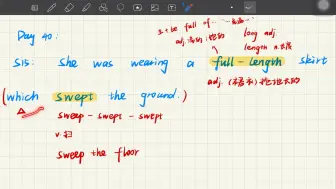 Day 40:
s.t be full of ...
adj. 满的; 饱的
long adj.
length n. 长度
S15: she was wearing a full-length skirt
adj. (裙衣) 拖地长的
(which swept the ground.)
sweep - swept - swept
v. 扫
sweep the floor